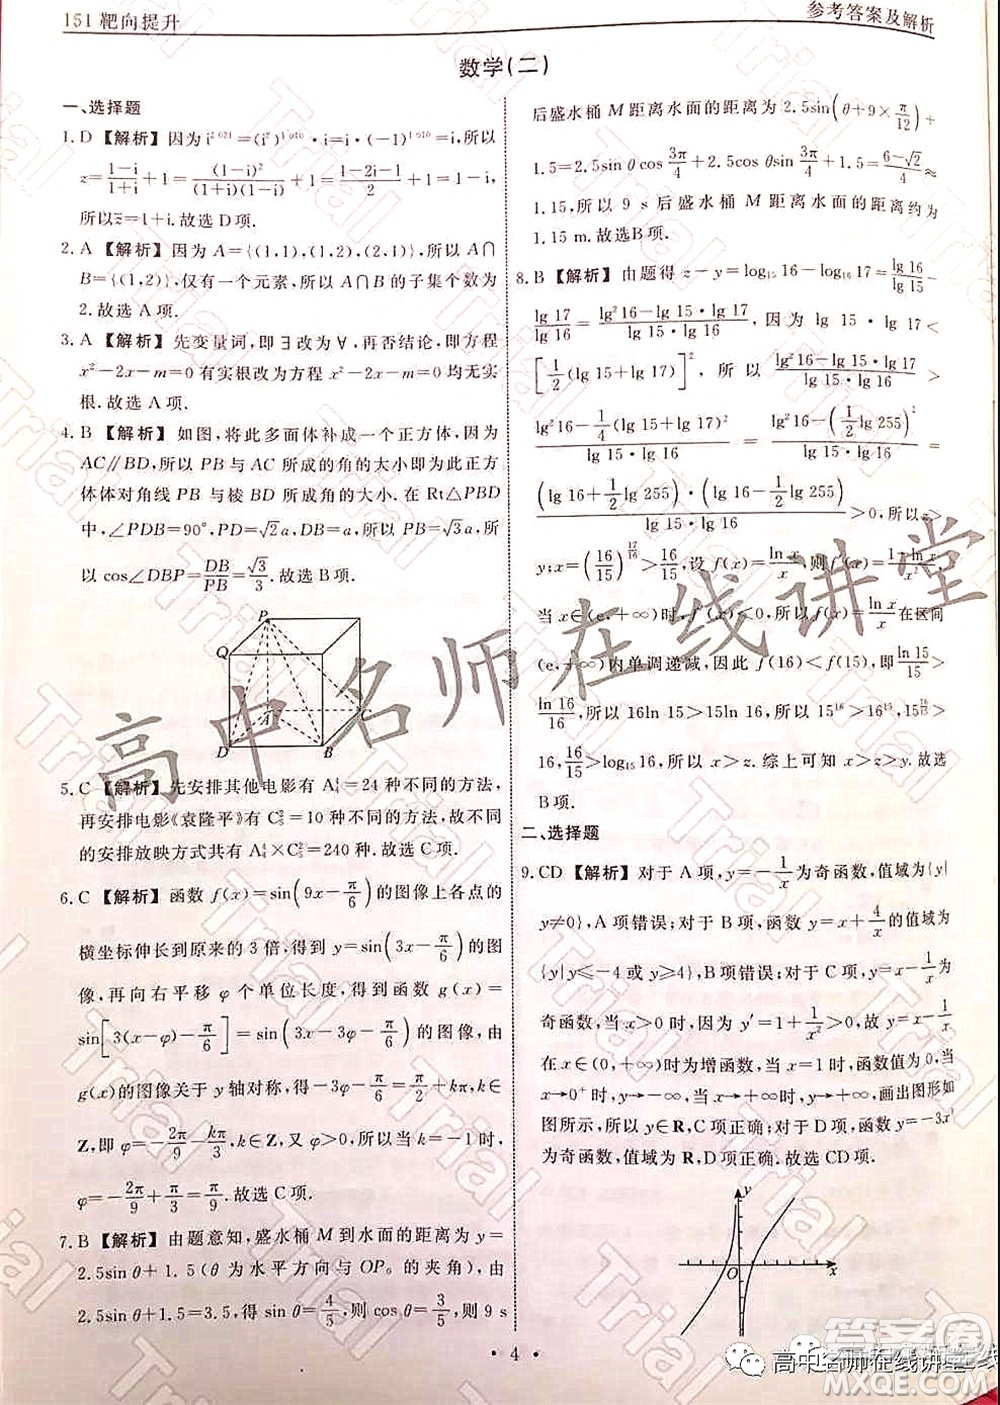 151靶向提升
参考答案及解析
数学(二)
一、选择题
1. D 【解析】因为 i²⁰²¹=(i²)¹⁰¹⁰·i=i·(-1)¹⁰¹⁰=i,所以
z=(1-i)/(1+i)+1=(1-i)²/((1+i)(1-i))+1=(1-2i-1)/2+1=-i+1,
所以z̄=1+i.故选D项.
2. A 【解析】因为 A={(1,1),(1,2),(2,1)},所以 A∩
B={(1,2)},仅有一个元素,所以 A∩B 的子集个数为
2.故选 A 项.
3. A 【解析】先变量词,即∃改为∀,再否结论,即方程
x²-2x-m=0 有实根改为方程 x²-2x-m=0 均无实
根.故选 A 项.
4. B 【解析】如图,将此多面体补成一个正方体,因为
AC∥BD,所以 PB 与 AC 所成的角的大小即此正方
体体对角线 PB 与棱 BD 所成角的大小.在 Rt△PBD
中,∠PDB=90°,PD=√2a,DB=a,所以 PB=√3a,所
以 cos∠DBP=DB/PB=√3/3.故选 B 项.
P
Q
C
D
B
5. C 【解析】先安排其他电影有 A₄⁴=24 种不同的方法,
再安排电影《袁隆平》有 C₅²=10 种不同的方法,故不同
的安排放映方式共有 A₄⁴×C₅²=240 种.故选 C 项.
6. C 【解析】函数 f(x)=sin(9x-π/6)的图像上各点的
横坐标伸长到原来的 3 倍,得到 y=sin(3x-π/6)的图
像,再向右平移 φ 个单位长度,得到函数 g(x)=
sin[3(x-φ)-π/6]=sin(3x-3φ-π/6)的图像,由
g(x)的图像关于 y 轴对称,得-3φ-π/6=π/2+kπ,k∈
Z,即 φ=-2π/9-kπ/3,k∈Z.因为 φ>0,所以当 k=-1 时,
φ=-2π/9+π/3=π/9.故选 C 项.
7. B 【解析】由题意知,盛水桶 M 到水面的距离为 y=
2.5sin θ+1.5(θ 为水平方向与 OP₀ 的夹角),所以由
2.5sin θ+1.5=3.5,得 sin θ=4/5,则 cos θ=3/5,则 9 s
后盛水桶 M 距离水面的距离为 2.5sin(θ+9×π/12)+
1.5=2.5sin θcos 3π/4+2.5cos θsin 3π/4+1.5=(6-√2)/4≈
1.15,所以 9 s 后盛水桶 M 距离水面的距离约为
1.15 m.故选B项.
8. B 【解析】由题得 z-y=log₁₅16-log₁₆17=lg 16/lg 15-
lg 17/lg 16=(lg²16-lg 15·lg 17)/(lg 15·lg 16),因为 lg 15·lg 17<
[1/2(lg 15+lg 17)]²,所以(lg²16-lg 15·lg 17)/(lg 15·lg 16)>
(lg²16-1/4(lg 15+lg 17)²)/(lg 15·lg 16)=(lg²16-(1/2lg 255)²)/(lg 15·lg 16)=
(lg 16+1/2lg 255)·(lg 16-1/2lg 255)/(lg 15·lg 16)>0,所以z>
y;x=(16/15)^(17/16)>16/15,设 f(x)=ln x/x,则f′(x)=(1-ln x)/x²,
当 x∈(e,+∞)时,f′(x)<0,所以f(x)=ln x/x在区间
(e,+∞)内单调递减,因此 f(16)<f(15),即ln 15/15>
ln 16/16,所以 16ln 15>15ln 16,所以 15¹⁶>16¹⁵,所以 15^(16/15)>
16,16/15>log₁₅16,所以 x>z.综上可知x>z>y.故选
B 项.
二、选择题
9. CD 【解析】对于 A 项,y=-1/x为奇函数,值域为{y|
y≠0},A 项错误;对于 B 项,函数 y=x+4/x的值域为
{y|y≤-4或y≥4},B项错误;对于C项,y=x-1/x为
奇函数,当 x>0 时,因为 y′=1+1/x²>0,故 y=x-1/x
在 x∈(0,+∞)时为增函数,当 x=1 时,函数值为 0,当
x→0⁺时,y→-∞,当 x→+∞时,y→+∞,画出图形如
图所示,所以 y∈R,C项正确;对于 D 项,函数 y=-3x³
为奇函数,值域为 R,D项正确.故选CD项.
y
O
x
· 4 ·
高中名师在线讲堂
高中名师在线讲堂
答案圈
MXQE.COM
Trial